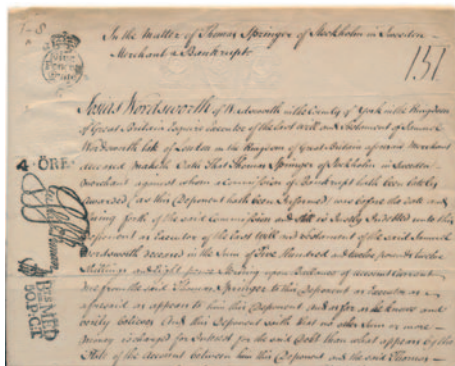 In the Matter of Thomas Springer of Stockholm in Sweden
Merchant a Bankrupt
151
Josias Wordsworth of Wadsworth in the County of York in the Kingdom
of Great Britain Esquire Executor of the last Will and Testament of Samuel
Wordsworth late of London in the Kingdom of Great Britain aforesaid Merchant
deceased maketh Oath That Thomas Springer of Stockholm in Sweden
Merchant against whom a Commission of Bankrupt hath been lately
awarded (as this Deponent hath been Informed) was before the date and
suing forth of the said Commission and still is Justly Indebted unto this
Deponent as Executor of the last Will and Testament of the said Samuel
Wordsworth deceased in the Sum of Five Hundred and twelve pounds twelve
Shillings and Eight pence Arising upon Ballance of account Current
due from the said Thomas Springer to this Deponent as Executor as
aforesaid as appears to him this Deponent and as far as he knows and
verily believes And this Deponent saith that no other Sum or more
money is charged for Interest for the said Debt than what appears by the
State of the account between him this Deponent and the said Thomas
4 ÖRE
BEMED
50.P.CT